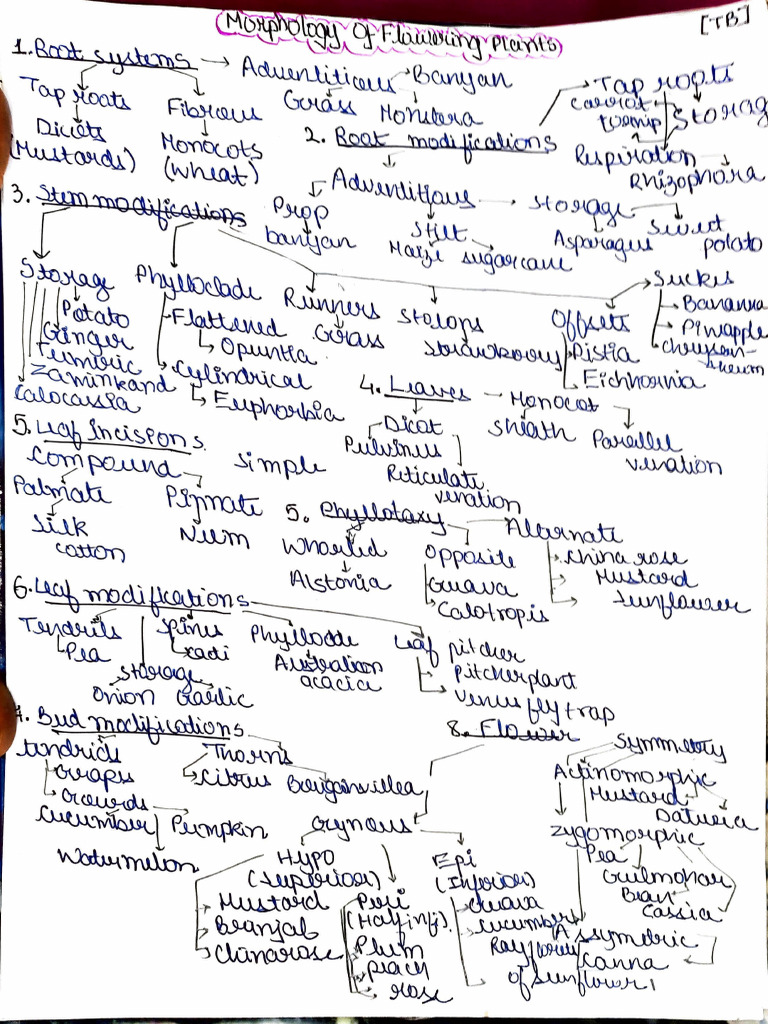 Morphology Of Flowering Plants
[TB]
1. Root systems → Adventitious → Banyan
Grass Monstera
Tap roots Fibrous
Dicots Monocots
(Mustards) (Wheat)
2. Root modifications
Tap roots
Carrot
turnip Storage
Respiration
Rhizophora
Adventitious → storage
Prop
banyan
Stilt
Maize sugarcane
Asparagus Sweet
potato
3. Stem modifications
Storage
Potato
Ginger
turmeric
Zaminkand
Calocassia
Phylloclade
Flattened
Opuntia
Cylindrical
Euphorbia
Runners
Grass
Stolons
Strawberry
Offsets
Pistia
Eichhornia
Banana
Pinwapple
4. Leaves
Dicot
Pulvinus
Reticulate
venation
Monocot
Sheath Parallel
venation
5. Leaf incisions
Compound Simple
Palmate Pinnate
Silk
cotton
Neem
5. Phyllotaxy
Whorled
Alstonia
Opposite
Guava
Calotropis
Alternate
China rose
Mustard
Sunflower
6. Leaf modifications
Tendrils
Pea
Spines
cacti
Storage
Onion Garlic
Phyllode
Australian
acacia
Leaf pitcher
Pitcherplant
Venus fly trap
7. Bud modifications
tendrils
Grapes
Gourds
Cucumber Pumpkin
Watermelon
Thorns
Citrus Bougainvillea
8. Flower
Gynous
Hypo
(Superior)
Mustard
Brinjal
Chinarose
Peri
(Half inf).
Plum
peach
rose
Epi
(Inferior)
Guava
cucumber
Ray florets
of sunflower
Symmetry
Actinomorphic
Mustard
Datura
Zygomorphic
Pea
Gulmohar
Bean
Cassia
Assymetric
Canna